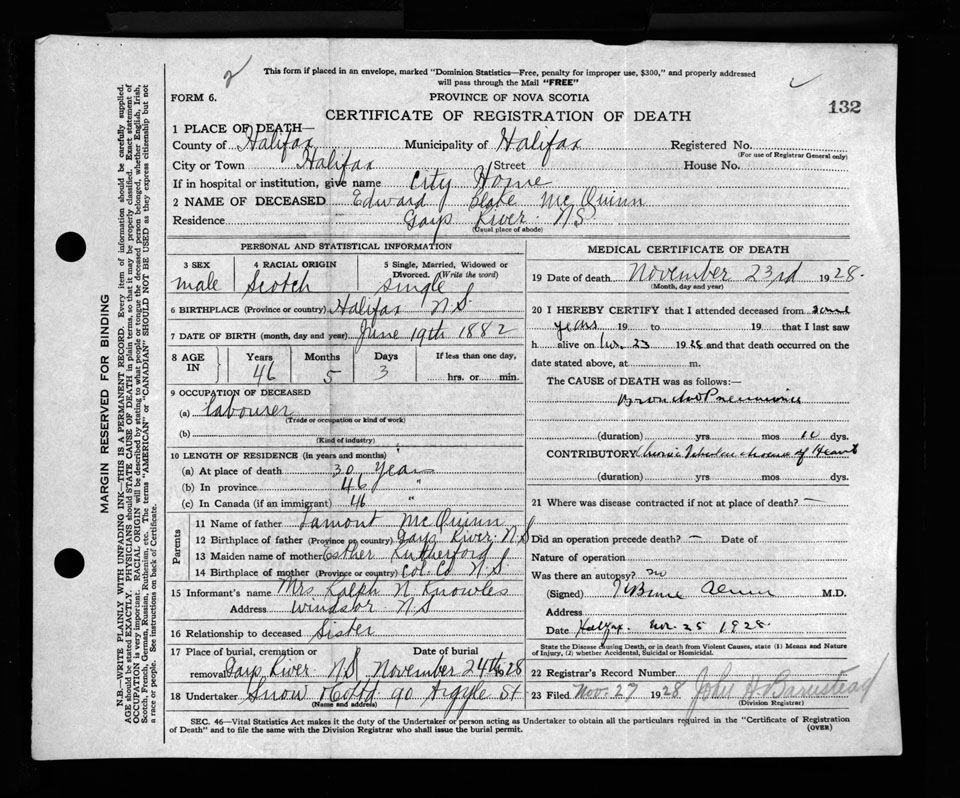 2
This form if placed in an envelope, marked "Dominion Statistics—Free, penalty for improper use, $300," and properly addressed
will pass through the Mail "FREE"
FORM 6. PROVINCE OF NOVA SCOTIA 132
CERTIFICATE OF REGISTRATION OF DEATH
1 PLACE OF DEATH—
County of Halifax Municipality of Halifax Registered No.
(For use of Registrar General only)
City or Town Halifax /Street House No.
If in hospital or institution, give name City Home
2 NAME OF DECEASED Edward Blake McQuinn
Residence Gays River NS
(Usual place of abode)
PERSONAL AND STATISTICAL INFORMATION
3 SEX male
4 RACIAL ORIGIN Scotch
5 Single, Married, Widowed or Divorced. (Write the word) Single
6 BIRTHPLACE (Province or country) Halifax N.S.
7 DATE OF BIRTH (month, day and year) June 19th 1882
8 AGE IN Years Months Days If less than one day,
46 5 3 hrs. or min.
9 OCCUPATION OF DECEASED
(a) Labourer
(Trade or occupation or kind of work)
(b)
(Kind of industry)
10 LENGTH OF RESIDENCE (in years and months)
(a) At place of death 30 Years
(b) In province 46 "
(c) In Canada (if an immigrant) 46 "
Parents
11 Name of father Lamont McQuinn
12 Birthplace of father (Province or country) Gays River N.S
13 Maiden name of mother Esther Rutherford
14 Birthplace of mother (Province or country) Col. Co N.S.
15 Informant's name Mrs Ralph N Knowles
Address Windsor N.S
16 Relationship to deceased Sister
17 Place of burial, cremation or removal Gays River NS Date of burial November 24th 1928
18 Undertaker Snow & Co Ltd 90 Argyle St
(Name and address)
MEDICAL CERTIFICATE OF DEATH
19 Date of death November 23rd 1928.
(Month, day and year)
20 I HEREBY CERTIFY that I attended deceased from some
years 19 to 19 that I last saw
h alive on Nov. 23 1928 and that death occurred on the
date stated above, at m.
The CAUSE of DEATH was as follows:
Broncho Pneumonia
(duration) yrs mos 10 dys.
CONTRIBUTORY Chronic Valvular disease of Heart
(duration) yrs mos dys.
21 Where was disease contracted if not at place of death? —
Did an operation precede death? — Date of
Nature of operation
Was there an autopsy? no
(Signed) M.D.
Address
Date Halifax. Nov. 25 1928.
State the Disease causing Death, or in death from Violent Causes, state (1) Means and Nature
of Injury, (2) whether Accidental, Suicidal or Homicidal.
22 Registrar's Record Number
23 Filed Nov. 27 1928 John H Barnstead
(Division Registrar)
SEC. 46—Vital Statistics Act makes it the duty of the Undertaker or person acting as Undertaker to obtain all the particulars required in the "Certificate of Registration
of Death" and to file the same with the Division Registrar who shall issue the burial permit.
(OVER)
MARGIN RESERVED FOR BINDING
N.B.—WRITE PLAINLY WITH UNFADING INK—THIS IS A PERMANENT RECORD. Every item of information should be carefully supplied.
AGE should be stated EXACTLY. PHYSICIANS should STATE CAUSE OF DEATH in plain terms, so that it may be properly classified. Exact statement of
OCCUPATION is very important. RACIAL ORIGIN will be described by stating to what people or tongue the deceased person belonged, whether English, Irish,
Scotch, French, German, Russian, Ruthenian, etc. The terms "AMERICAN" or "CANADIAN" SHOULD NOT BE USED as they express citizenship but not
a race or people. See instructions on back of Certificate.